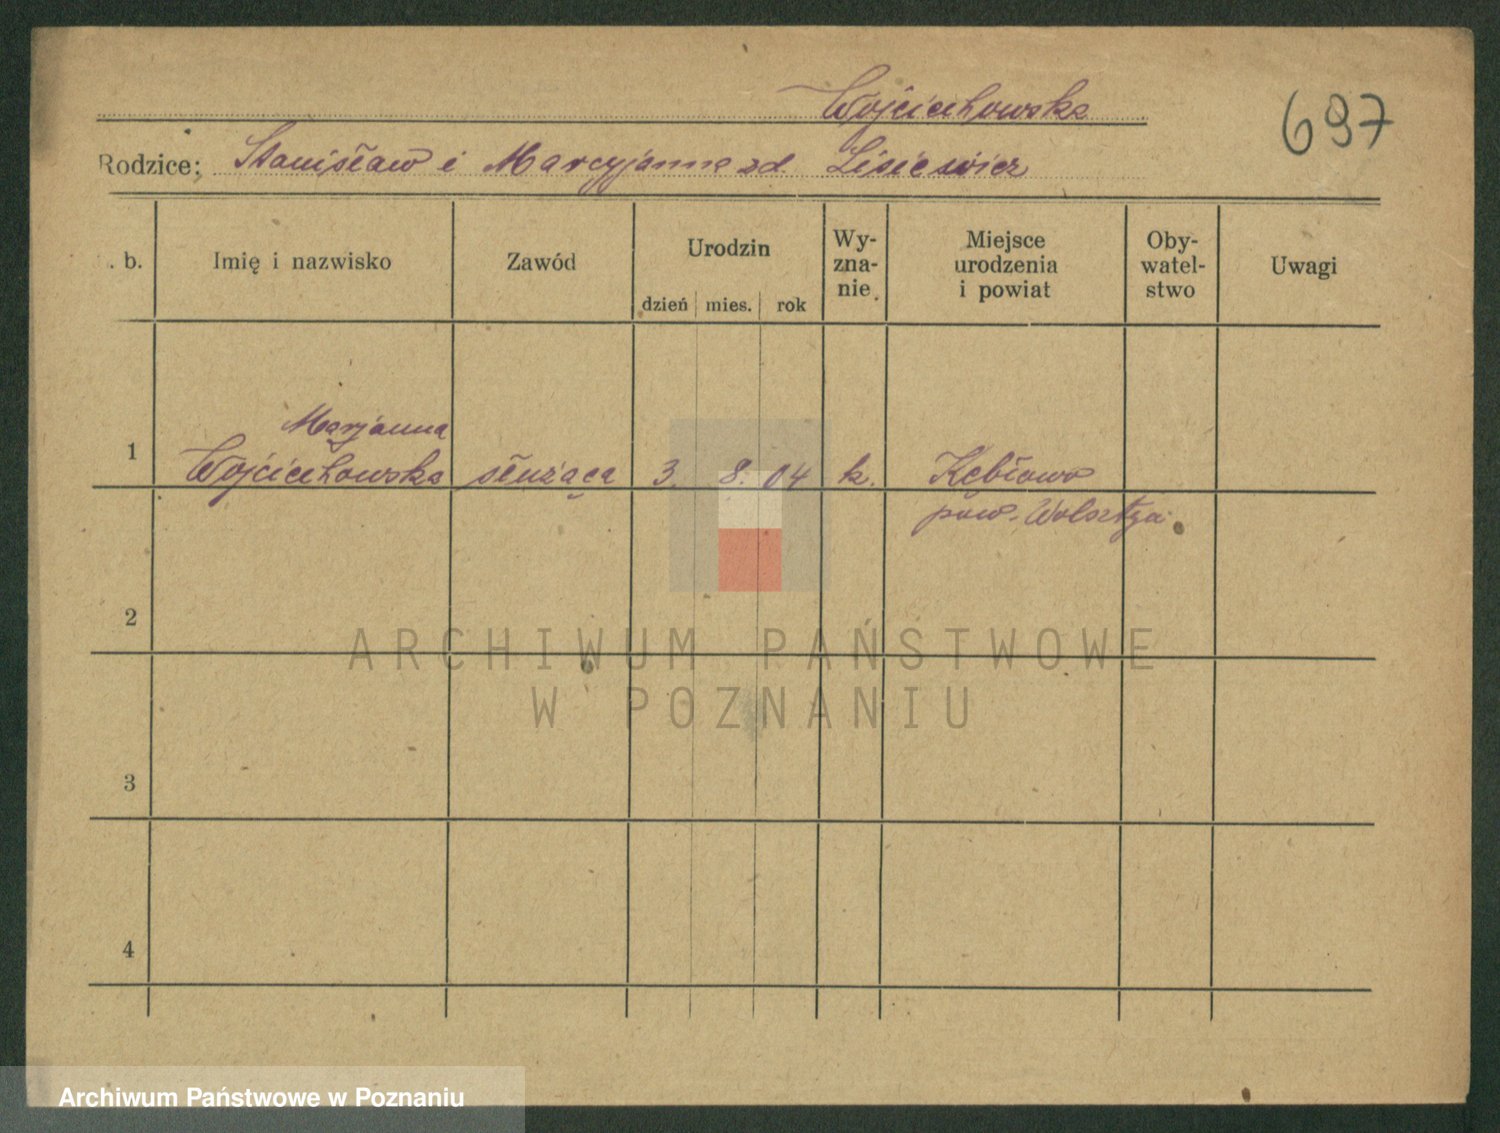 Wojciechowska
697
Rodzice: Stanisław i Marcyjanna zd. Lisiewicz
. b.
Imię i nazwisko
Zawód
Urodzin
dzień mies. rok
Wy-
zna-
nie.
Miejsce
urodzenia
i powiat
Oby-
watel-
stwo
Uwagi
Marjanna
1 Wojciechowska służąca 3. 8. 04 k. Kębłowo
pow. Wolsztyn
2
3
4
ARCHIWUM PAŃSTWOWE
W POZNANIU
Archiwum Państwowe w Poznaniu